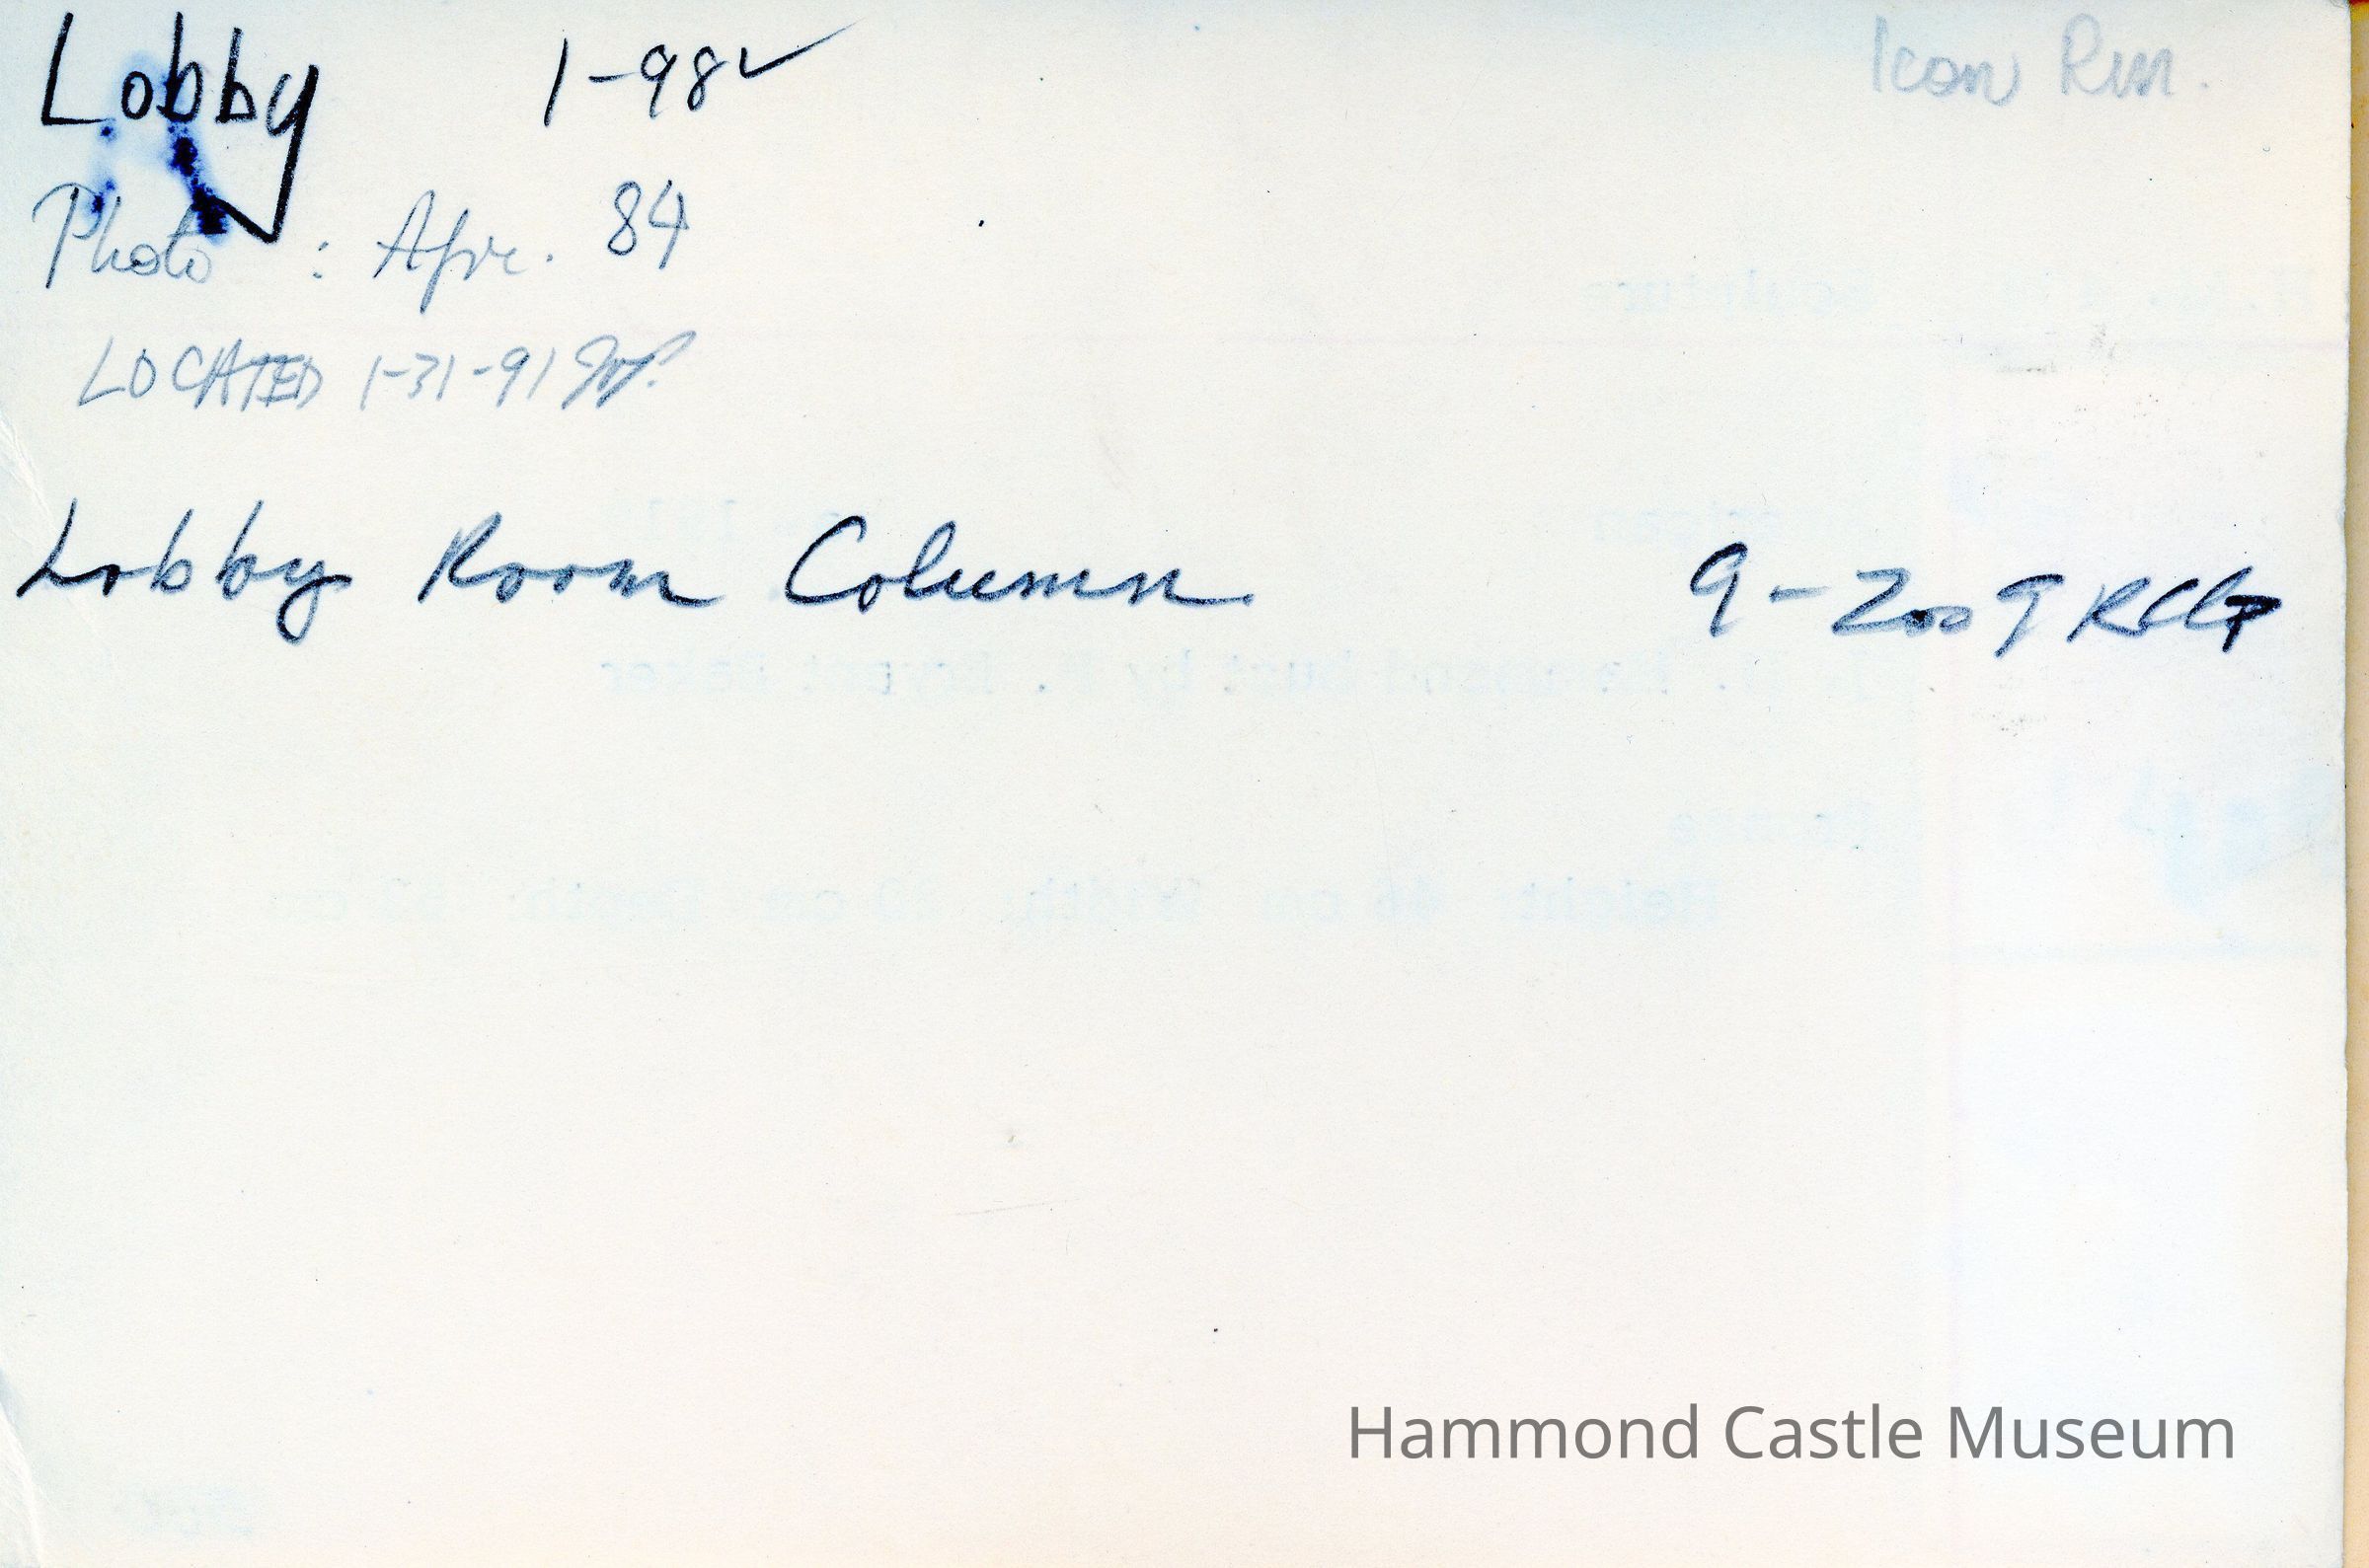 Lobby 1-98✓ Icon Rm.
Photo : Apr. 84
LOCATED 1-31-91
Lobby Room Column 9-2009
Hammond Castle Museum